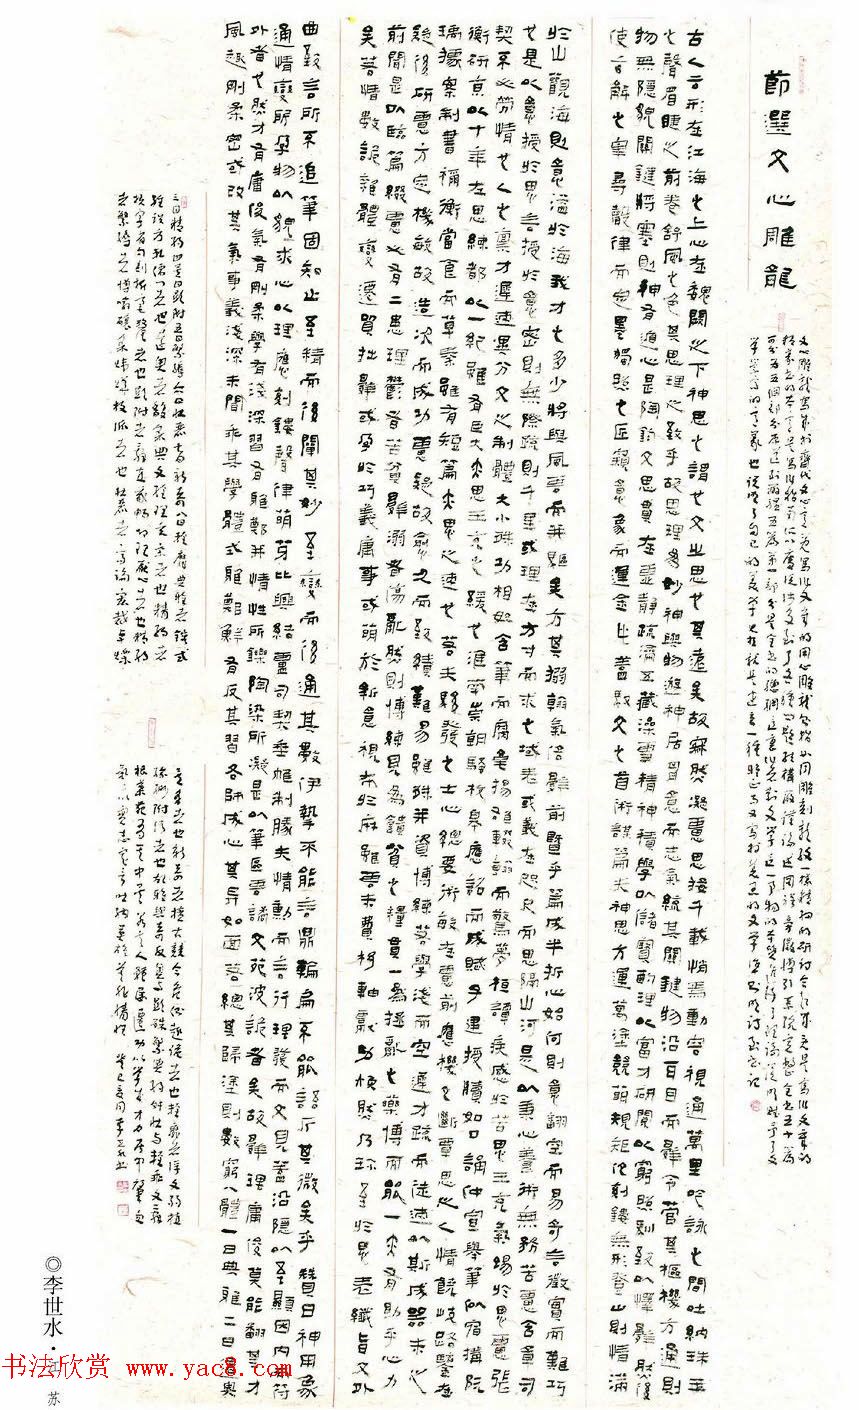 節選文心雕龍
古人云形在江海之上心在魏闕之下神思之謂也文之思也其遠矣故寂然凝慮思接千載悄焉動容視通萬里吟詠之間吐納珠玉
之聲眉睫之前卷舒風之色其思理之致乎故思理為妙神與物遊神居胸意而志氣統其關鍵物沿耳目而辭令管其樞機方通則
物無隱貌關鍵將塞則神有遯心是陶鈞文思貴在虛靜疏瀹五藏澡雪精神積學以儲寶酌理以富才研閱以窮照馴致以懌辭然後
使玄解之宰尋聲律而定墨獨照之匠窺意象而運斤此蓋馭文之首術謀篇夫神思方運萬塗競萌規矩虛位刻鏤無形登山則情滿
於山觀海則意溢於海我才之多少將與風雲而並驅矣方其搦翰氣倍辭前暨乎篇成半折心始何則意翻空而易奇言徵實而難巧
也是以意授於思言授於意密則無際疏則千里或理在方寸而求之域表或義在咫尺而思隔山河是以秉心養術無務苦慮含章司
契不必勞情也人之稟才遲速異分文之制體大小殊功相如含筆而腐毫揚雄輟翰而驚夢桓譚疾感於苦思王充氣竭於思慮張
衡研京以十年左思練都以一紀雖有巨文亦思之緩也淮南崇朝騷枚皋應詔而成賦子建援牘如口誦仲宣舉筆似宿搆阮
瑀據案制書禰衡當食而草奏雖有短篇亦思之速也若夫駿發之士心總要術敏在慮前應機立斷覃思之人情饒歧路鑒在
疑後研慮方定機敏故造次而成功慮疑故愈久而致績難易雖殊並資博練若學淺而空遲才疏而徒速以斯成器未之
前聞是以臨篇綴慮必有二患理鬱者苦貧辭溺者傷亂然則博練見為饋貧之糧貫一為拯亂之藥博而能一亦有助乎心力
矣若情數詭雜體變遷貿拙辭或孕於巧義庸事或萌於新意視布於麻雖云未費杼軸獻功煥然乃珍至於思表纖旨文外
曲致言所不追筆固知止至精而後闡其妙至變而後通其數伊摯不能言鼎輪扁不能語斤其微矣乎贊曰神用象
通情變所孕物以貌求心以理應刻鏤聲律萌芽比興結慮司契垂帷制勝夫情動而言行理發而文見蓋沿隱以至顯因內符
外者也然才有庸俊氣有剛柔學有淺深習有雅鄭并情性所鑠陶染所凝是以筆區雲譎文苑波詭者矣故辭理庸俊莫能翻其才
風趣剛柔寧或改其氣事義淺深未聞乖其學體式雅鄭鮮有反其習各師成心其異如面若總其歸塗則數窮八體一曰典雅二曰遠奧
三曰精約四曰顯附五曰繁縟六曰壯麗七曰新奇八曰輕靡典雅者鎔式
經誥方軌儒門者也遠奧者馥采典文經理玄宗者也精約者
核字省句剖析毫釐者也顯附者辭直義暢切理厭心者也繁縟
者博喻釀采煒燁枝派者也壯麗者高論宏裁卓爍
異采者也新奇者擯古競今危側趣詭者也輕靡者浮文弱植
縹緲附俗者也故雅與奇反奧與顯殊繁與約舛壯與輕乖文辭
根葉苑囿其中矣若夫八體屢遷功以學成才力居中肇自血
氣氣以實志志定言吐納英華莫非情性 癸巳夏月李世水
◎李世水·江苏
书法欣赏 www.yac8.com